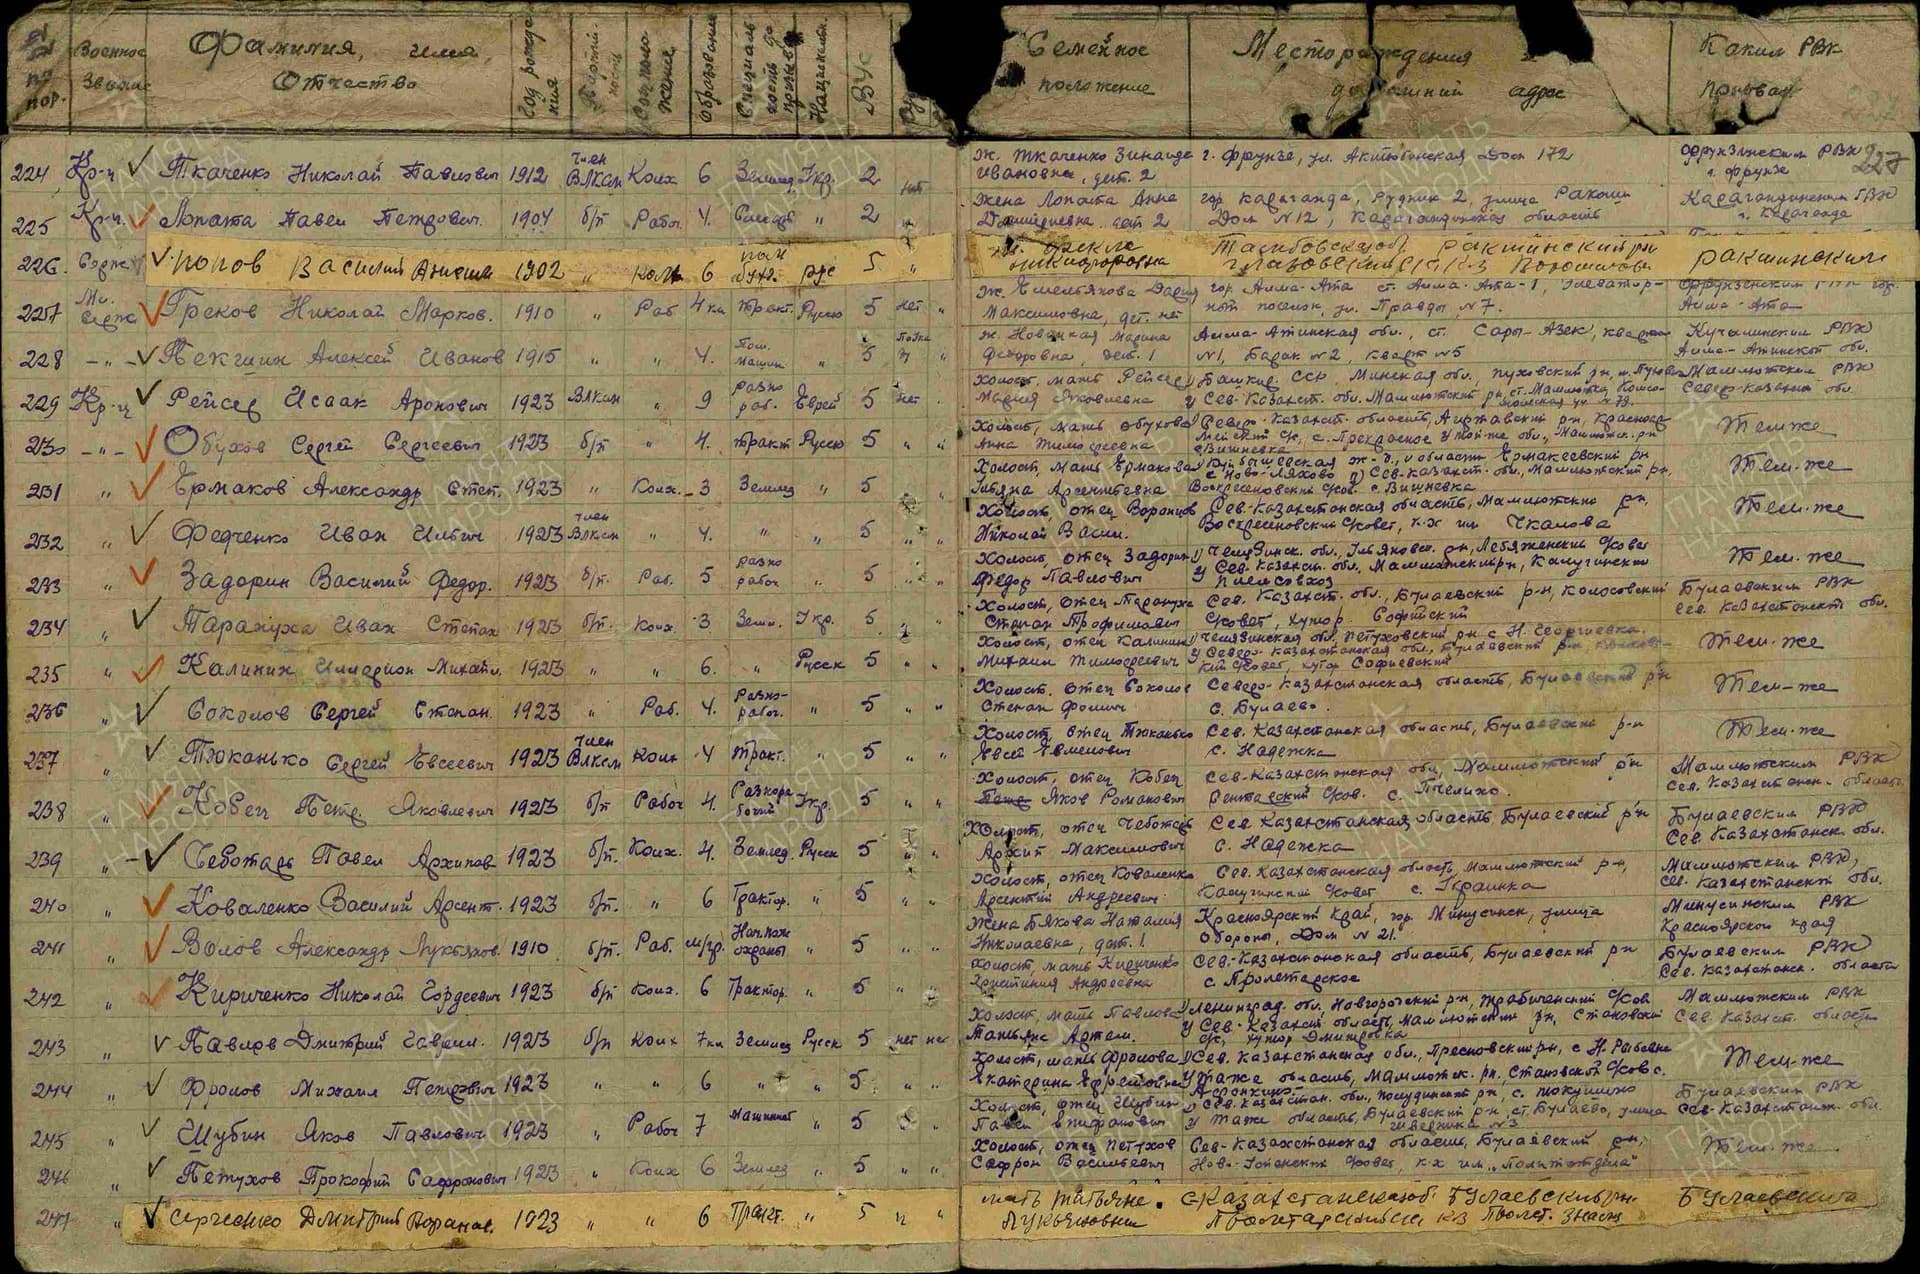 №№ по пор.
Военное звание
Фамилия, имя, Отчество
Год рождения
Партийность
Соц. положение
Образование
Специальность до призыва
Национальн.
ВУС
Семейное положение
Место рождения домашний адрес
Каким РВК призван
227
224 Кр-ц Ткаченко Николай Павлович 1912 член ВЛКСМ Колх 6 Землед. Укр. 2 нет ж. Ткаченко Зинаида г. Фрунзе, ул. Актюбинская Дом 172 Фрунзенским РВК
Ивановна, дет. 2 г. Фрунзе
225 Кр-ц Лопата Павел Петрович 1904 б/п Рабоч. 4. Слесарь " 2 Жена Лопата Анна гор. Караганда, Рудник 2, улица Ракоши Карагандинским ГВК
дет 2 Дом N12, Карагандинская область г. Караганда
226. Попов Василий 1902 " колх 6 рус 5 " Ракшинский р-н Ракшинским
227 Мл. серж Греков Николай Марков. 1910 " Раб 4 кл Тракт. Русск 5 нет " ж. Емельянова Дария гор. Алма-Ата ст. Алма-Ата-1, Элеватор- Фрунзенским РВК гор.
Максимовна, дет. нет ный поселок, ул. Правды, N7. Алма-Ата
228 -"- Пекшин Алексей Иванов 1915 " " 4. Пом. Машин " 5 " ж. Новацкая Марина Алма-Атинская обл., ст. Сары-Азек, квартал РВК
Федоровна, дет. 1 N1, Барак N2, кварт N5 Алма-Атинской обл.
229 Кр-ц Рейсер Исаак Аронович 1923 ВЛКСМ " 9 разно раб. Еврей 5 нет. Холост, мать Рейсер 1) Башкир. ССР, Минская обл., Пуховский р-н, Мамлютским РВК
Мария Яковлевна 2) Сев-Казахст. обл. Мамлютский р-н, ст. Мамлютка, Комсо- Северо-Казахст обл.
мольская ул. N 79.
230 -"- Обухов Сергей Сергеевич 1923 б/п " 4. тракт Русск 5 " " Холост, мать Обухова Северо-Казахст. область, Айртавский р-н,
Анна Тимофеевна с. Прекрасное 2) той-же обл., Мамлютск. р-н Тем же
с. Вишневка
231 " Ермаков Александр Степ. 1923 " Колх. 3 Землед " 5 " Холост, мать Ермакова 1) Куйбышевская ж-д., и области Ермакеевский рн
с Ново-Ляхово 2) Сев-Казахст. обл., Мамлютский р-н, Тем-же
Арсентьевна Воскресеновский с/сов. с. Вишневка
232 " Федченко Иван Ильич 1923 член ВЛКСМ " 4. " " 5 " " Холост, отец Воронцов Сев-Казахстанская область, Мамлютский р-н, Тем-же
Николай Васил. Воскресеновский с/совет, к-х им Чкалова
233 " Задорин Василий Федор. 1923 б/п. Раб. 5 разно рабоч. " 5 " " Холост, отец Задорин 1) Челябинск. обл., Ульяновск. р-н, Лебяженский с/сов Тем-же
Федор Павлович 2) Сев. Казахст. обл., Мамлютский р-н, Калугинский
племсовхоз
234 " Тарануха Иван Степан 1923 б/п. Колх 3 Земл. Укр. 5 " Холост, отец Тарануха Сев. Казахст. обл., Булаевский р-н, Колосовский Булаевским РВК
Степан Трофимович с/совет, хутор. Софийский Сев. Казахстанск. обл.
235 " Калинин Илларион Михайл. 1923 " " 6. " Русск 5 " " Холост, отец Калинин 1) Челябинская обл. Петуховский р-н с Н. Георгиевка.
Михаил Тимофеевич 2) Северо-Казахстанская обл., Булаевский р-н, Тем-же
с/совет, хутор Софиевский
236 " Соколов Сергей Степан. 1923 " Раб. 4. Разно-рабоч. " 5 " " Холост, отец Соколов Северо-Казахстанская область, Булаевский р-н Тем-же
Степан Фомич с. Булаево.
237 " Тюканько Сергей Евсеевич 1923 член ВЛКСМ Колх 4 Тракт. " 5 " " Холост, отец Тюканько Сев. Казахстанская область, Булаевский р-н Тем-же
Евсей с. Надежка
238 " Кобец Петр. Яковлевич 1923 б/п Рабоч 4. Разнорабочий Укр. 5 " " Холост, отец Кобец Сев-Казахстанская обл, Мамлютский р-н Мамлютским РВК
Яков Романович с/сов. с. Пчелино. Сев. Казахстанск. област.
239 " Чеботарь Павел Архипов 1923 б/п. Колх. 4. Землед. Русск 5 " " Холост, отец Чеботарь Сев. Казахстанская область Булаевский р-н Булаевским РВК
Архип Максимович с. Надежка Сев. Казахстанск. обл.
240 " Коваленко Василий Арсент. 1923 б/п. " 6 Трактор. " 5 " " Холост, отец Коваленко Сев. Казахстанская область Мамлютский р-н, Мамлютским РВК,
Арсентий Андреевич Калугинский с/совет с. Украинка Сев. Казахстанской обл.
241 " Волов Александр Лукьянов. 1910 б/п. Раб. м/гр. Нач. пож охраны " 5 " " Жена Бякова Наталия Красноярский край, гор. Минусинск, улица Минусинским РВК
Николаевна, дет. 1 Обороны, Дом N 21. Красноярского края
242 " Кириченко Николай Гордеевич 1923 б/п Колх. 6 Трактор. " 5 " Холост, мать Кириченко Сев.-Казахстанская область, Булаевский р-н Булаевским РВК
Христиния Андреевна с. Пролетарское Сев. Казахстанск. области
243 " Павлов Дмитрий Гаврил. 1923 б/п Колх 7 кл Землед Русск 5 нет нет Холост, мать Павлова 1) Ленинград. обл., Новгородский р-н, с/сов. Мамлютским РВК
Татьяна Артем. 2) Сев. Казахст. область, Мамлютский р-н, Становский Сев. Казахст. область
с/с, хутор Дмитровка
244 " Фролов Михаил Петрович 1923 " " 6 " " 5 " " Холост, мать Фролова 1) Сев. Казахстанская обл., Пресновский р-н, с Н. Рыбинка Тем-же
Екатерина Ефремовна 2) таже область, Мамлютск. р-н, Становской с/сов с.
Афонькино.
245 " Шубин Яков Павлович 1923 " Рабоч 7 Машинист " 5 " Холост, отец Шубин 1) Сев. Казахстан. обл., Полудинский р-н, с. Токушино Булаевским РВК
Павел Епифанович 2) таже область, Булаевский р-н, ст. Булаево, улица Сев-Казахстанск. обл.
N3
246 " Петухов Прокофий Сафронович 1923 " Колх 6 Землед " 5 " " Холост, отец Петухов Сев-Казахстанская область, Булаевский р-н, Тем-же
Сафрон Васильевич с/совет, к-х им. "Политотдела"
247 " Сергиенко Дмитрий 1923 " " 6 Тракт. " 5 " " мать Татьяна С Казахстанской об. Булаевский рн. Булаевским
Лукьяновна Пролетарский с/с к-з Пролет. знамя
ПАМЯТЬ НАРОДА